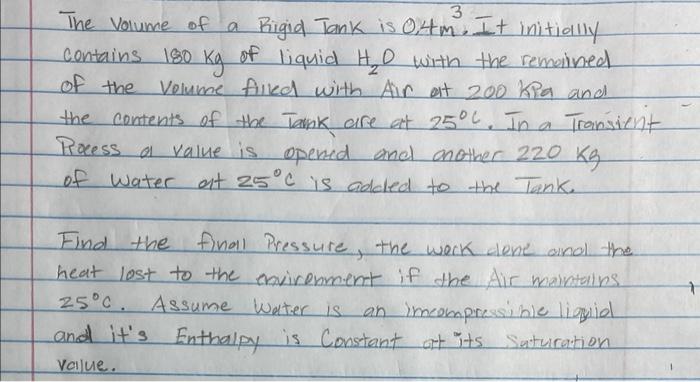 The Volume of a Rigid Tank is 0.4m³. It initially
contains 180 Kg of liquid H₂O with the remained
of the Volume filled with Air at 200 KPa and
the contents of the Tank are at 25°C. In a Transient
Process a value is opened and another 220 Kg
of water at 25°C is added to the Tank.
Find the final Pressure, the work done and the
heat lost to the environment if the Air maintains
25°C. Assume Water is an imcompressible liquid
and it's Enthalpy is Constant at its Saturation
value.